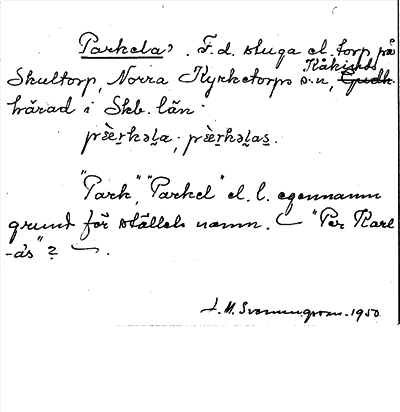 Parkela’. F.d. stuga el. torp på
Skultorp, Norra Kyrketorps s:n, Kåkinds
härad i Skb. län.
pæ̀r̤kəl̤a; pæ̀r̤kəl̤as̤.
"Park", "Parkel" el. l. egennamn
grund för ställets namn. "Per Karl
-ás"?
1950